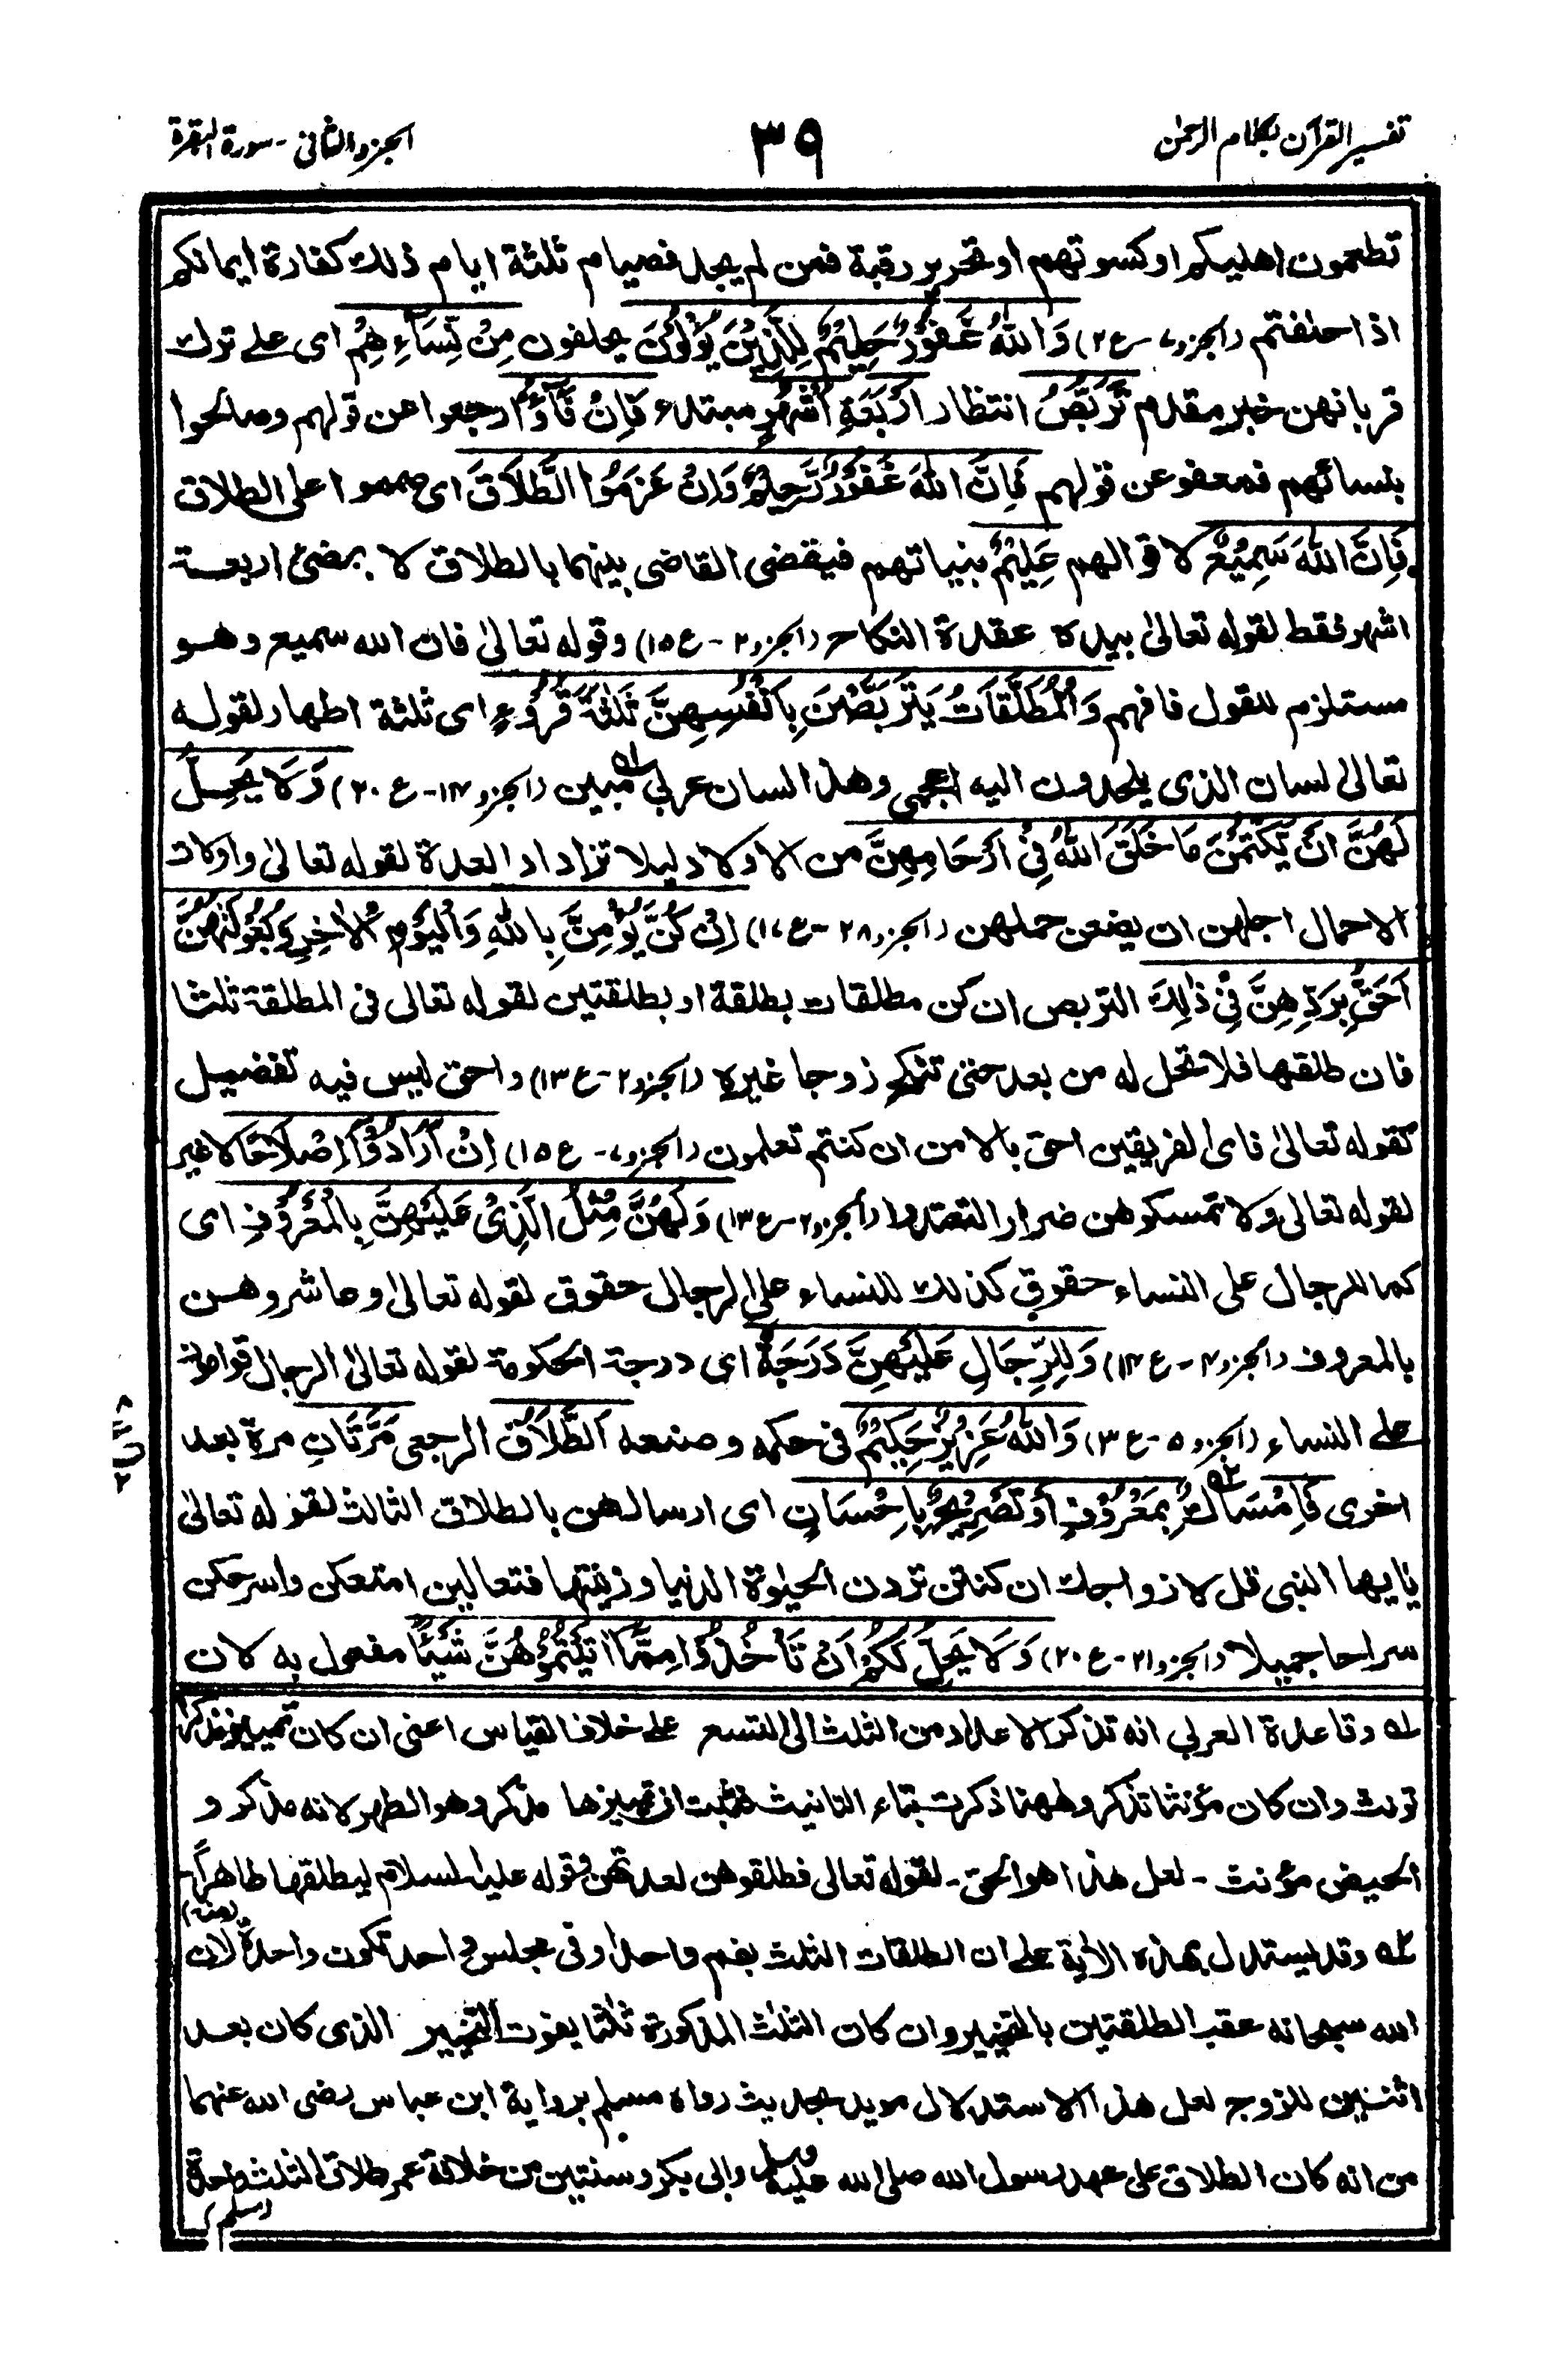 تفسير القرآن بكلام الرحمٰن
٣٩
الجزء الثاني - سورة البقرة
تطعمون اهليكم او كسوتهم او تحرير رقبة فمن لم يجد فصيام ثلثة ايام ذلك كفارة ايمانكم
اذا حلفتم (الجزو٧-ع٢) وَاللّٰهُ غَفُوْرٌ حَلِيْمٌ لِلَّذِيْنَ يُؤْلُوْنَ يحلفون مِنْ نِّسَآءِهِمْ اى على ترك
قربانهن خبر مقدم تَرَبُّصُ انتظار اَرْبَعَةِ اَشْهُرٍ مبتداء فَاِنْ فَآءُوْ رجعوا عن قولهم وصالحوا
بنسائهم فمعفو عن قولهم فَاِنَّ اللّٰهَ غَفُوْرٌ رَّحِيْمٌ وَاِنْ عَزَمُوا الطَّلَاقَ اى صمموا على الطلاق
فَاِنَّ اللّٰهَ سَمِيْعٌ لاقوالهم عَلِيْمٌ بنياتهم فيقضى القاضى بينهما بالطلاق لا بمضى اربعة
اشهر فقط لقوله تعالىٰ بيده عقدة النكاح (الجزو٢-ع١٥) وقوله تعالىٰ فان الله سميع وهو
مستلزم للقول فافهم وَالْمُطَلَّقَاتُ يَتَرَبَّصْنَ بِاَنْفُسِهِنَّ ثَلٰثَةَ قُرُوْءٍ اى ثلثة اطهار لقوله
تعالىٰ لسان الذى يلحدون اليه اعجمى وهذا لسان عربى مبين (الجزو١٤-ع٢٠) وَلَا يَحِلُّ
لَهُنَّ اَنْ يَّكْتُمْنَ مَا خَلَقَ اللّٰهُ فِىْ اَرْحَامِهِنَّ من الاولاد ليلا تزداد العدة لقوله تعالىٰ واولات
الاحمال اجلهن ان يضعن حملهن (الجزو٢٨-ع١٧) اِنْ كُنَّ يُؤْمِنَّ بِاللّٰهِ وَالْيَوْمِ الْاٰخِرِ وَبُعُوْلَتُهُنَّ
اَحَقُّ بِرَدِّهِنَّ فِىْ ذٰلِكَ التربص ان كن مطلقات بطلقة او بطلقتين لقوله تعالى فى المطلقة ثلثا
فان طلقها فلا تحل له من بعد حتى تنكح زوجا غيره (الجزو٢-ع١٣) واحق ليس فيه تفضيل
كقوله تعالىٰ فاى الفريقين احق بالامن ان كنتم تعلمون (الجزو٧-ع١٥) اِنْ اَرَادُوْٓا اِصْلَاحًا لا غير
لقوله تعالى ولا تمسكوهن ضرارا لتعتدوا (الجزو٢-ع١٣) وَلَهُنَّ مِثْلُ الَّذِىْ عَلَيْهِنَّ بِالْمَعْرُوْفِ اى
كما للرجال على النساء حقوق كذلك للنساء على الرجال حقوق لقوله تعالىٰ وعاشروهن
بالمعروف (الجزو٤-ع١٤) وَلِلرِّجَالِ عَلَيْهِنَّ دَرَجَةٌ اى درجة الحكومة لقوله تعالىٰ الرجال قوامون
على النساء (الجزو٥-ع٣) وَاللّٰهُ عَزِيْزٌ حَكِيْمٌ فى حكمه وصنعه اَلطَّلَاقُ الرجعى مَرَّتَانِ مرة بعد
اخرى فَاِمْسَاكٌ بِمَعْرُوْفٍ اَوْ تَسْرِيْحٌ بِاِحْسَانٍ اى ارسالهن بالطلاق الثالث لقوله تعالىٰ
يٰايها النبى قل لازواجك ان كنتن تردن الحيٰوة الدنيا وزينتها فتعالين امتعكن واسرحكن
سراحا جميلا (الجزو٢١-ع٢٠) وَلَا يَحِلُّ لَكُمْ اَنْ تَأْخُذُوْا مِمَّآ اٰتَيْتُمُوْهُنَّ شَيْئًا مفعول به لان
١ه وقاعدة العربى انه تذكر الاعداد من الثلث الى التسع على خلاف القياس اعنى ان كان تمييز مذكرا
تونث وان كان مؤنثا تذكر وههنا ذكرت بتاء التانيث فثبت ان تمييزها مذكر وهو الطهر لانه مذكر و
الحيض مؤنث - لعل هذا هو الحق - لقوله تعالى فطلقوهن لعدتهن وقوله عليه السلام ليطلقها طاهراً -
(منه)
٢ه وقد يستدل بهذه الاٰية على ان الطلقات الثلث بفم واحد او فى مجلس واحد تكون واحدة لان
الله سبحانه عقب الطلقتين بالتخيير وان كان الثلث المذكورة ثلثا يفوت التخيير الذى كان بعد
اثنتين للزوج لعل هذا الاستدلال مويد بحديث رواه مسلم برواية ابن عباس رضى الله عنهما
من انه كان الطلاق على عهد رسول الله صلى الله عليه وسلم وابى بكر وسنتين من خلافة عمر طلاق الثلث واحدة
(مسلم)